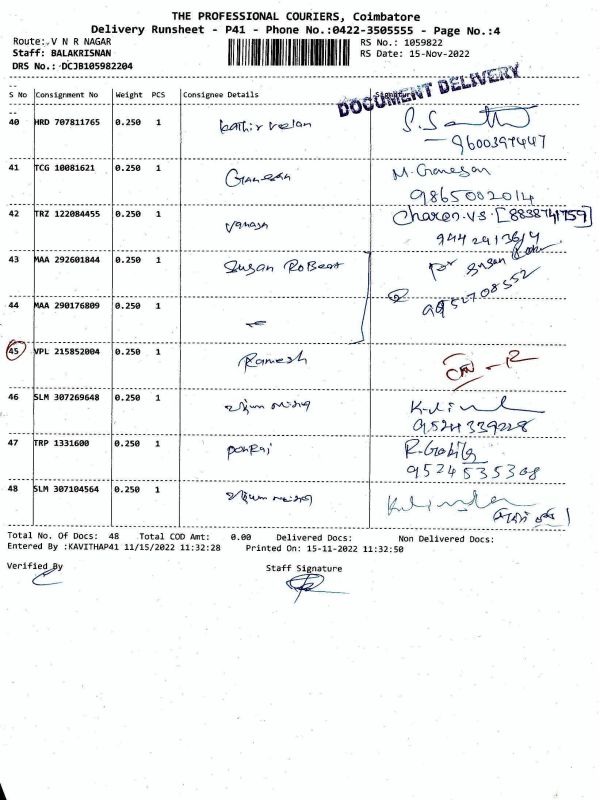 THE PROFESSIONAL COURIERS, Coimbatore
Delivery Runsheet - P41 - Phone No.:0422-3505555 - Page No.:4
Route: V N R NAGAR RS No.: 1059822
Staff: BALAKRISNAN RS Date: 15-Nov-2022
DRS No.: DCJB105982204
DOCUMENT DELIVERY
S No Consignment No Weight PCS Consignee Details Signature
40 HRD 707811765 0.250 1 kathir velan
9600397447
41 TCG 10081621 0.250 1 Ganesan M. Ganesan
9865002014
42 TRZ 122084455 0.250 1 Charen.vs. [8838741759]
43 MAA 292601844 0.250 1 Susan Robert for Susan
9952708552
44 MAA 290176809 0.250 1
45 VPL 215852004 0.250 1 Ramesh
46 SLM 307269648 0.250 1
9524339228
47 TRP 1331600 0.250 1 ponraj
9524535308
48 SLM 307104564 0.250 1
Total No. Of Docs: 48 Total COD Amt: 0.00 Delivered Docs: Non Delivered Docs:
Entered By :KAVITHAP41 11/15/2022 11:32:28 Printed On: 15-11-2022 11:32:50
Verified By Staff Signature